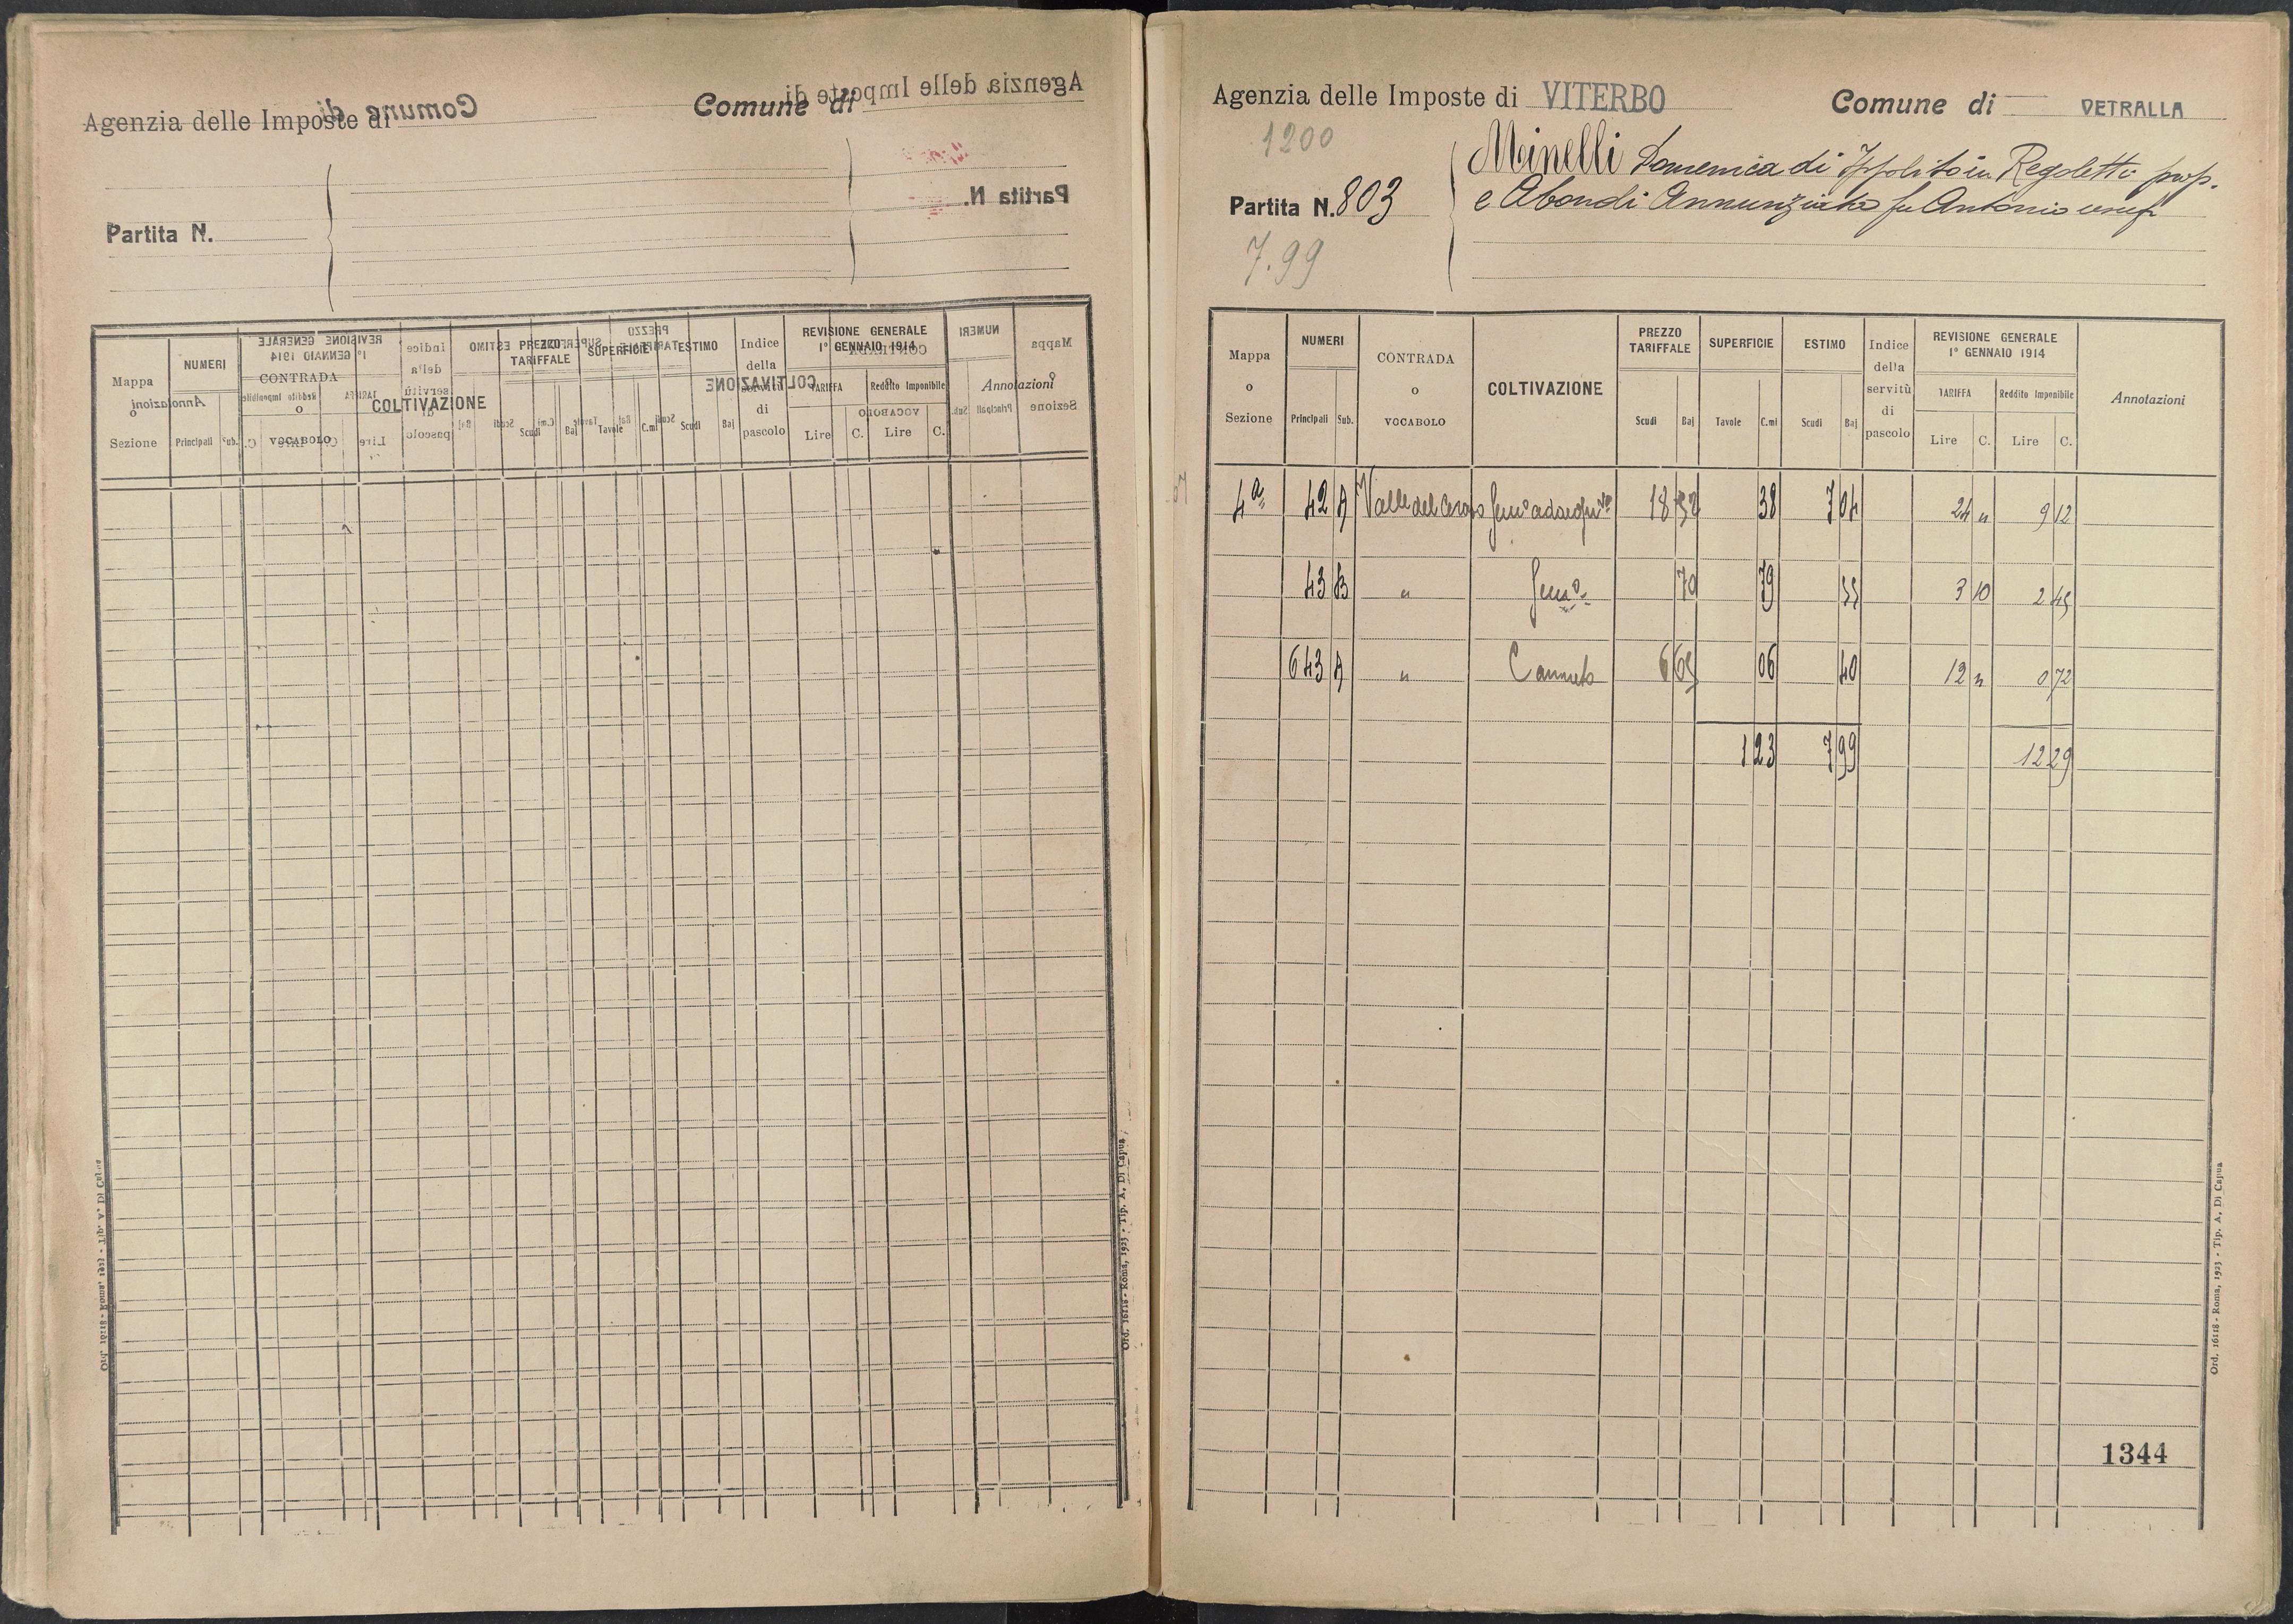 Agenzia delle Imposte di
Comune di
Partita N.
Mappa o Sezione
NUMERI
Principali Sub.
CONTRADA o VOCABOLO
COLTIVAZIONE
PREZZO TARIFFALE
Scudi Baj
SUPERFICIE
Tavole C.mi
ESTIMO
Scudi Baj
Indice della servitù di pascolo
REVISIONE GENERALE
1° GENNAIO 1914
TARIFFA
Lire C.
Reddito Imponibile
Lire C.
Annotazioni
Ord. 16118 - Roma, 1923 - Tip. A. Di Capua
Agenzia delle Imposte di VITERBO
Comune di VETRALLA
1200
Partita N. 803
7.99
Minelli Domenica di Ippolito in Regoletti prop.
e Abondi Annunziata fu Antonio usuf
Mappa o Sezione
NUMERI
Principali Sub.
CONTRADA o VOCABOLO
COLTIVAZIONE
PREZZO TARIFFALE
Scudi Baj
SUPERFICIE
Tavole C.mi
ESTIMO
Scudi Baj
Indice della servitù di pascolo
REVISIONE GENERALE
1° GENNAIO 1914
TARIFFA
Lire C.
Reddito Imponibile
Lire C.
Annotazioni
4a 42 A Valle del 18 52 38 7 04 24 " 9 12
43 B " Sem° 70 79 55 3 10 2 45
643 A " Canneto 6 65 06 40 12 " 0 72
1 23 7 99 12 29
1344
Ord. 16118 - Roma, 1923 - Tip. A. Di Capua